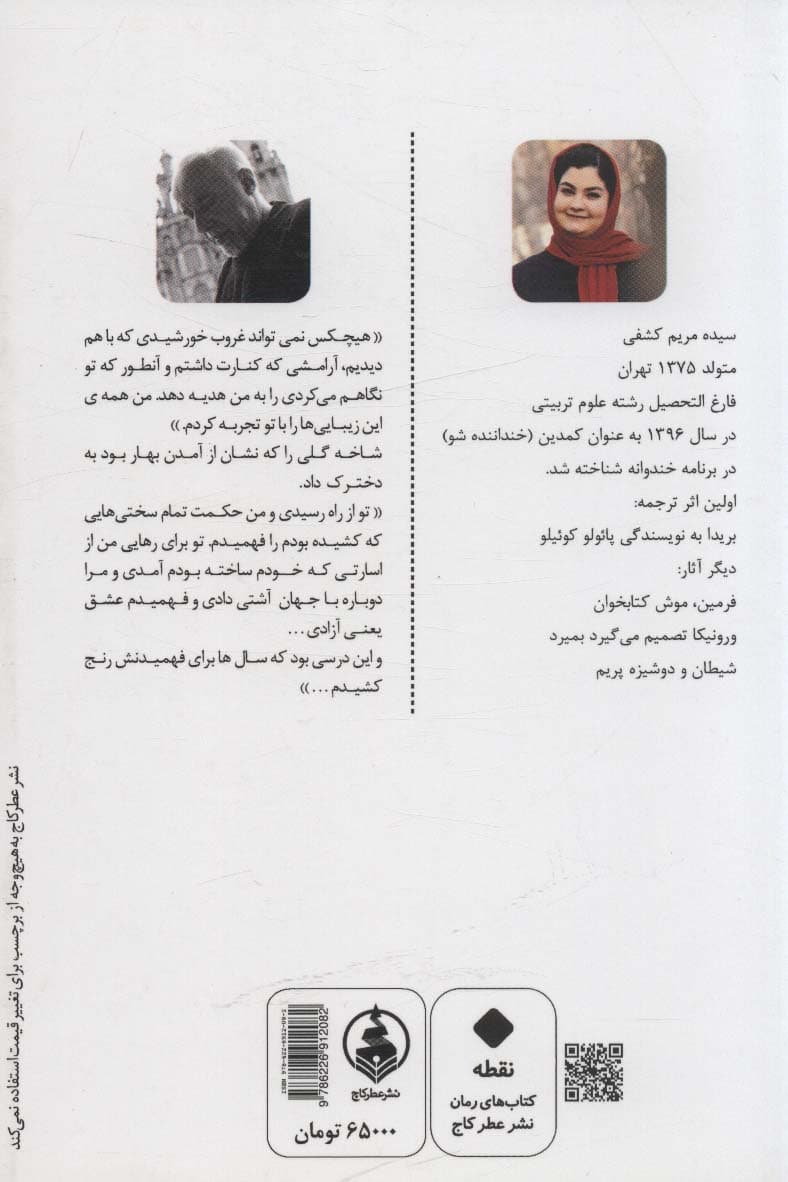 سیده مریم کشفی
متولد ۱۳۷۵ تهران
فارغ التحصیل رشته علوم تربیتی
در سال ۱۳۹۶ به عنوان کمدین (خنداننده شو)
در برنامه خندوانه شناخته شد.
اولین اثر ترجمه:
بریدا به نویسندگی پائولو کوئیلو
دیگر آثار:
فرمین، موش کتابخوان
ورونیکا تصمیم می‌گیرد بمیرد
شیطان و دوشیزه پریم
(( هیچکس نمی تواند غروب خورشیدی که با هم
دیدیم، آرامشی که کنارت داشتم و آنطور که تو
نگاهم می‌کردی را به من هدیه دهد. من همه ی
این زیبایی‌ها را با تو تجربه کردم.))
شاخه گلی را که نشان از آمدن بهار بود به
دخترک داد.
(( تو از راه رسیدی و من حکمت تمام سختی‌هایی
که کشیده بودم را فهمیدم. تو برای رهایی من از
اسارتی که خودم ساخته بودم آمدی و مرا
دوباره با جهان آشتی دادی و فهمیدم عشق
یعنی آزادی...
و این درسی بود که سال ها برای فهمیدنش رنج
کشیدم...))
نشر عطر کاج به هیچ وجه از برچسب برای تغییر قیمت استفاده نمی‌کند
نقطه
کتاب‌های رمان
نشر عطر کاج
نشر عطر کاج
ISBN 978-622-6912-08-2
9 786226 912082
۶۵۰۰۰ تومان